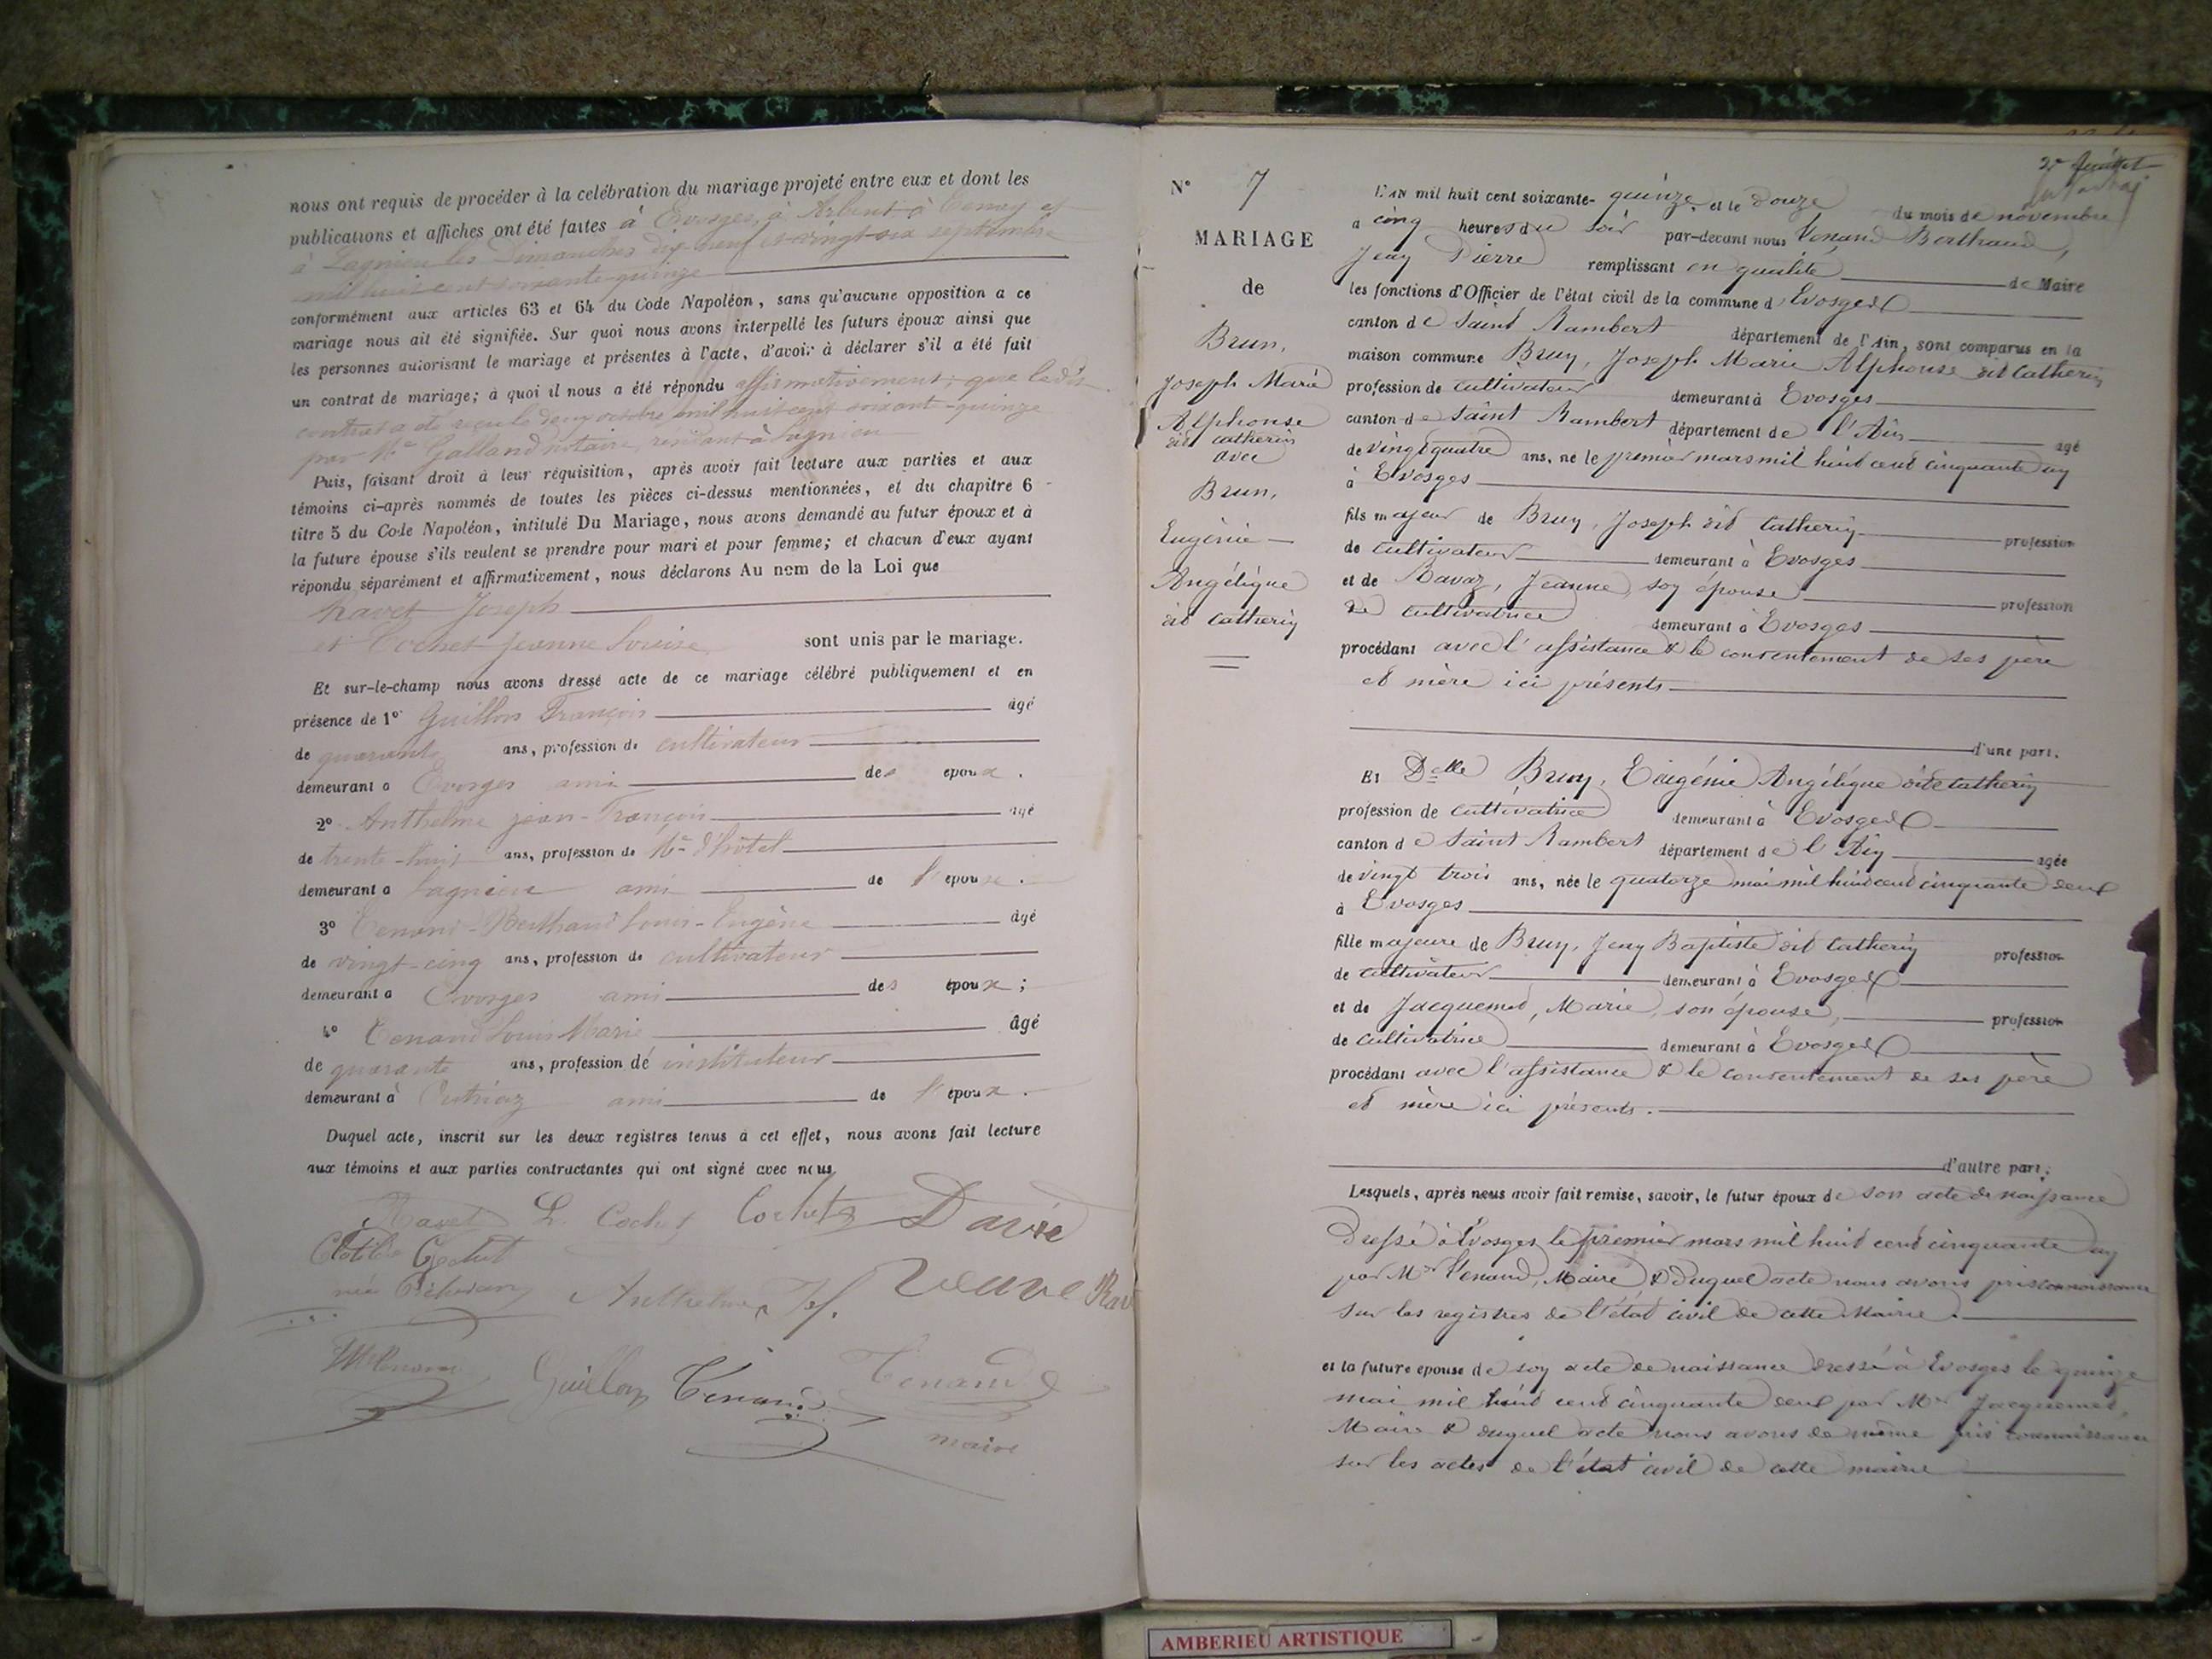 nous ont requis de procéder à la celébration du mariage projeté entre eux et dont les
publications et affiches ont été faites à Evosges, à Arbent à Tenay et
à Lagnieu les Dimanches dix-neuf et vingt-six septembre
mil huit cent soixante-quinze
conformément aux articles 63 et 64 du Code Napoléon, sans qu'aucune opposition a ce
mariage nous ait été signifiée. Sur quoi nous avons interpellé les futurs époux ainsi que
les personnes autorisant le mariage et présentes à l'acte, d'avoir à déclarer s'il a été fait
un contrat de mariage; à quoi il nous a été répondu affirmativement; que ledit
contrat a été reçu le deux octobre mil huit cent soixante-quinze
par Me Galland notaire, résidant à Lagnieu
Puis, faisant droit à leur réquisition, après avoir fait lecture aux parties et aux
témoins ci-après nommés de toutes les pièces ci-dessus mentionnées, et du chapitre 6
titre 5 du Code Napoléon, intitulé Du Mariage, nous avons demandé au futur époux et à
la future épouse s'ils veulent se prendre pour mari et pour femme; et chacun d'eux ayant
répondu séparément et affirmativement, nous déclarons Au nom de la Loi que
Ravet Joseph
et Cochet Jeanne Louise sont unis par le mariage.
Et sur-le-champ nous avons dressé acte de ce mariage célébré publiquement et en
présence de 1° Guillon François âgé
de quarante ans, profession de cultivateur
demeurant à Evosges ami des époux.
2° Anthelme jean-François âgé
de trente-huit ans, profession de Me d'hôtel
demeurant à Lagnieu ami de l'épouse.
3° Tenand-Berthaud Louis-Eugène âgé
de vingt-cinq ans, profession de cultivateur
demeurant à Evosges ami des époux;
4° Tenand Louis Marie âgé
de quarante ans, profession de instituteur
demeurant à ami de l'époux.
Duquel acte, inscrit sur les deux registres tenus à cet effet, nous avons fait lecture
aux témoins et aux parties contractantes qui ont signé avec nous
Ravet L. Cochet Cochet David
Clotilde Cochet
née Anthelme Jf. veuve Rav
Guillon Tenand Tenand
maire
2e feuillet
N° 7
MARIAGE
de
Brun,
Joseph Marie
Alphonse
dit catherin
avec
Brun,
Eugénie
Angélique
dit Catherin
L'AN mil huit cent soixante-quinze, et le Douze du mois de novembre
à cinq heures du soir par-devant nous Tenand Berthaud,
Jean Pierre remplissant en qualité de Maire
les fonctions d'Officier de l'état civil de la commune d'Evosges
canton de Saint Rambert département de l'Ain, sont comparus en la
maison commune Brun, Joseph Marie Alphonse dit Catherin
profession de cultivateur demeurant à Evosges
canton de Saint Rambert département de l'Ain agé
de vingt quatre ans, né le premier mars mil huit cent cinquante un
à Evosges
fils majeur de Brun, Joseph dit Catherin profession
de cultivateur demeurant à Evosges
et de Ravaz, Jeanne, son épouse profession
de cultivatrice demeurant à Evosges
procédant avec l'assistance & le consentement de ses père
et mère ici présents
d'une part.
Et Delle Brun, Eugénie Angélique dite Catherin
profession de cultivatrice demeurant à Evosges
canton de Saint Rambert département de l'Ain agée
de vingt trois ans, née le quatorze mai mil huit cent cinquante deux
à Evosges
fille majeure de Brun, Jean Baptiste dit Catherin profession
de cultivateur demeurant à Evosges
et de Jacquemet, Marie, son épouse, profession
de cultivatrice demeurant à Evosges
procédant avec l'assistance & le consentement de ses père
et mère ici présents.
d'autre part;
Lesquels, après nous avoir fait remise, savoir, le futur époux de son acte de naissance
Dressé à Evosges le premier mars mil huit cent cinquante un
par Mr Tenand, Maire & duquel acte nous avons pris connaissance
sur les registres de l'état civil de cette Mairie.
et la future épouse de son acte de naissance dressé à Evosges le quinze
mai mil huit cent cinquante deux par Mr Jacquemet,
Maire & duquel acte nous avons de même pris connaissance
sur les actes de l'état civil de cette mairie
AMBERIEU ARTISTIQUE